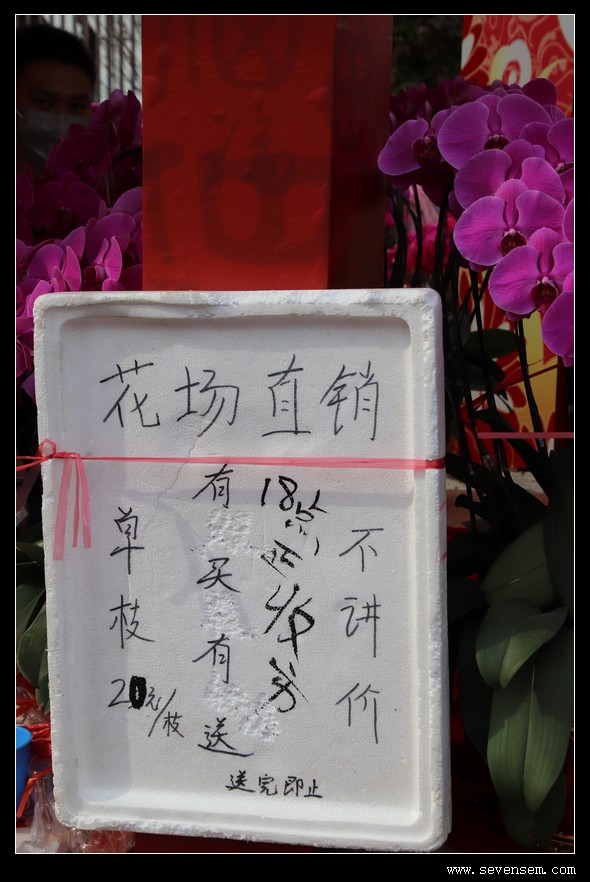 花场直销
单枝
20元/枝
有买有送
18点正
不讲价
送完即止
www.sevensem.com